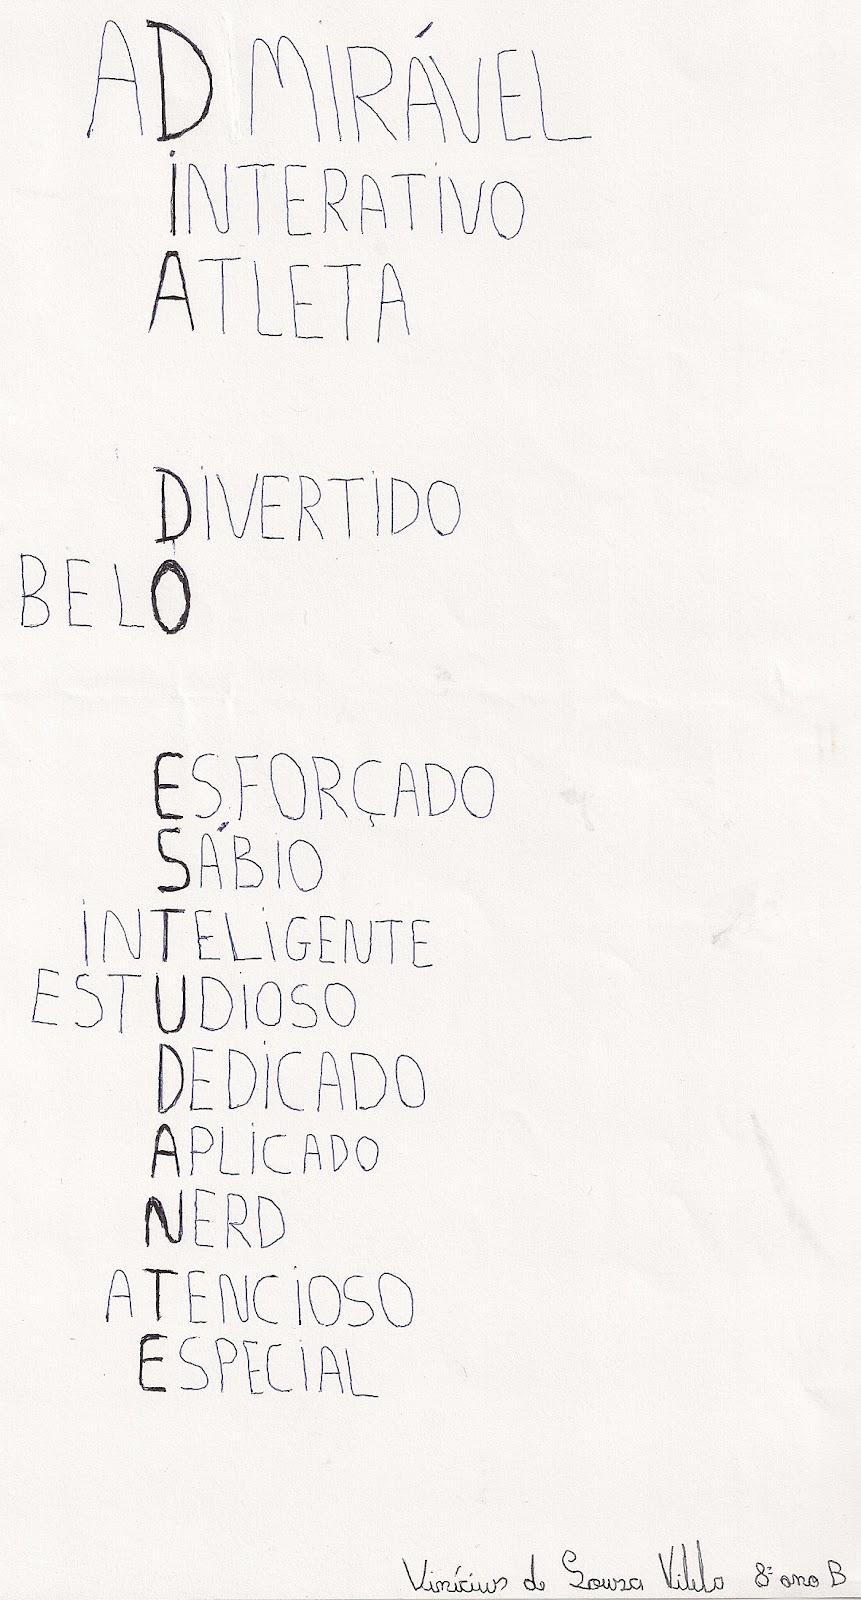 ADMIRÁVEL
INTERATIVO
ATLETA
DIVERTIDO
BELO
ESFORÇADO
SÁBIO
INTELIGENTE
ESTUDIOSO
DEDICADO
APLICADO
NERD
ATENCIOSO
ESPECIAL
Vinícius de Souza Vilela 8º ano B